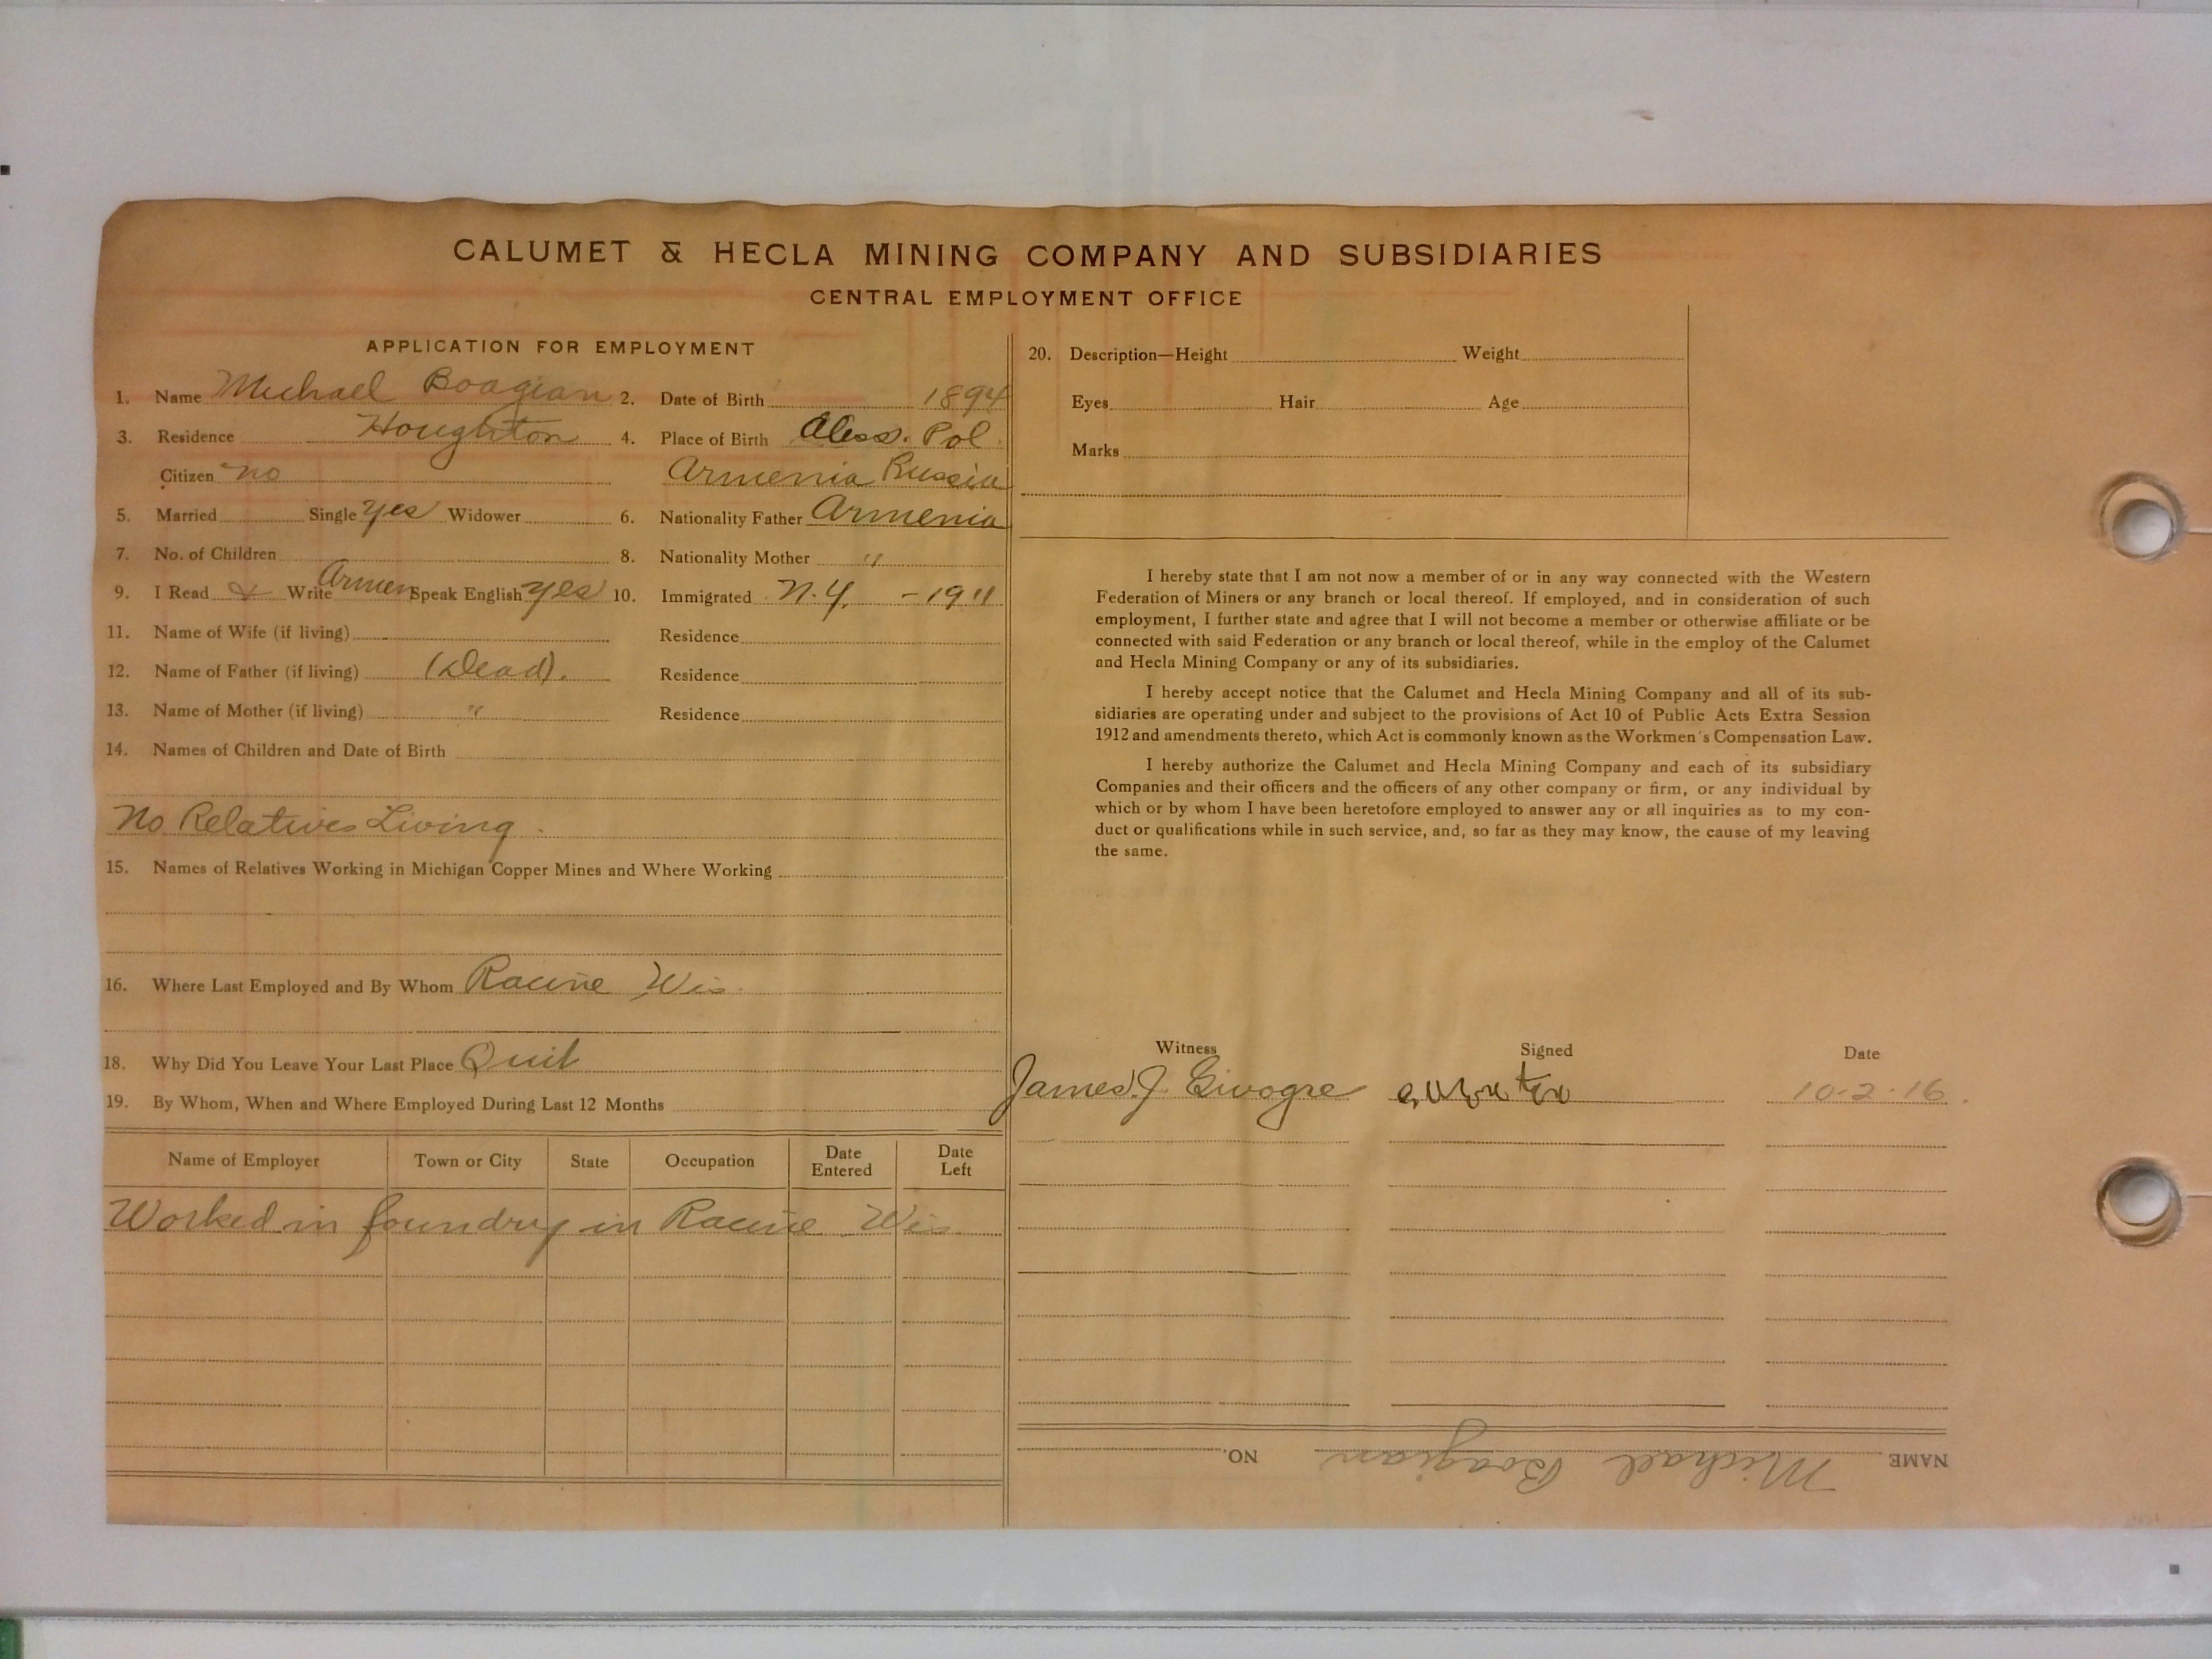 CALUMET & HECLA MINING COMPANY AND SUBSIDIARIES
CENTRAL EMPLOYMENT OFFICE
APPLICATION FOR EMPLOYMENT
1. Name Michael Boagian 2. Date of Birth 1894
3. Residence Houghton 4. Place of Birth Aless. Pol.
Citizen no Armenia Russia
5. Married Single yes Widower 6. Nationality Father Armenia
7. No. of Children 8. Nationality Mother "
9. I Read & Write Armen Speak English yes 10. Immigrated N.Y. - 1911
11. Name of Wife (if living) Residence
12. Name of Father (if living) (Dead). Residence
13. Name of Mother (if living) " Residence
14. Names of Children and Date of Birth
No Relatives Living.
15. Names of Relatives Working in Michigan Copper Mines and Where Working
16. Where Last Employed and By Whom Racine Wis.
18. Why Did You Leave Your Last Place Quit
19. By Whom, When and Where Employed During Last 12 Months
Name of Employer Town or City State Occupation Date Entered Date Left
Worked in foundry in Racine Wis.
20. Description—Height Weight
Eyes Hair Age
Marks
I hereby state that I am not now a member of or in any way connected with the Western
Federation of Miners or any branch or local thereof. If employed, and in consideration of such
employment, I further state and agree that I will not become a member or otherwise affiliate or be
connected with said Federation or any branch or local thereof, while in the employ of the Calumet
and Hecla Mining Company or any of its subsidiaries.
I hereby accept notice that the Calumet and Hecla Mining Company and all of its sub-
sidiaries are operating under and subject to the provisions of Act 10 of Public Acts Extra Session
1912 and amendments thereto, which Act is commonly known as the Workmen's Compensation Law.
I hereby authorize the Calumet and Hecla Mining Company and each of its subsidiary
Companies and their officers and the officers of any other company or firm, or any individual by
which or by whom I have been heretofore employed to answer any or all inquiries as to my con-
duct or qualifications while in such service, and, so far as they may know, the cause of my leaving
the same.
Witness Signed Date
James J. 10-2-16.
NAME Michael Boagian NO.